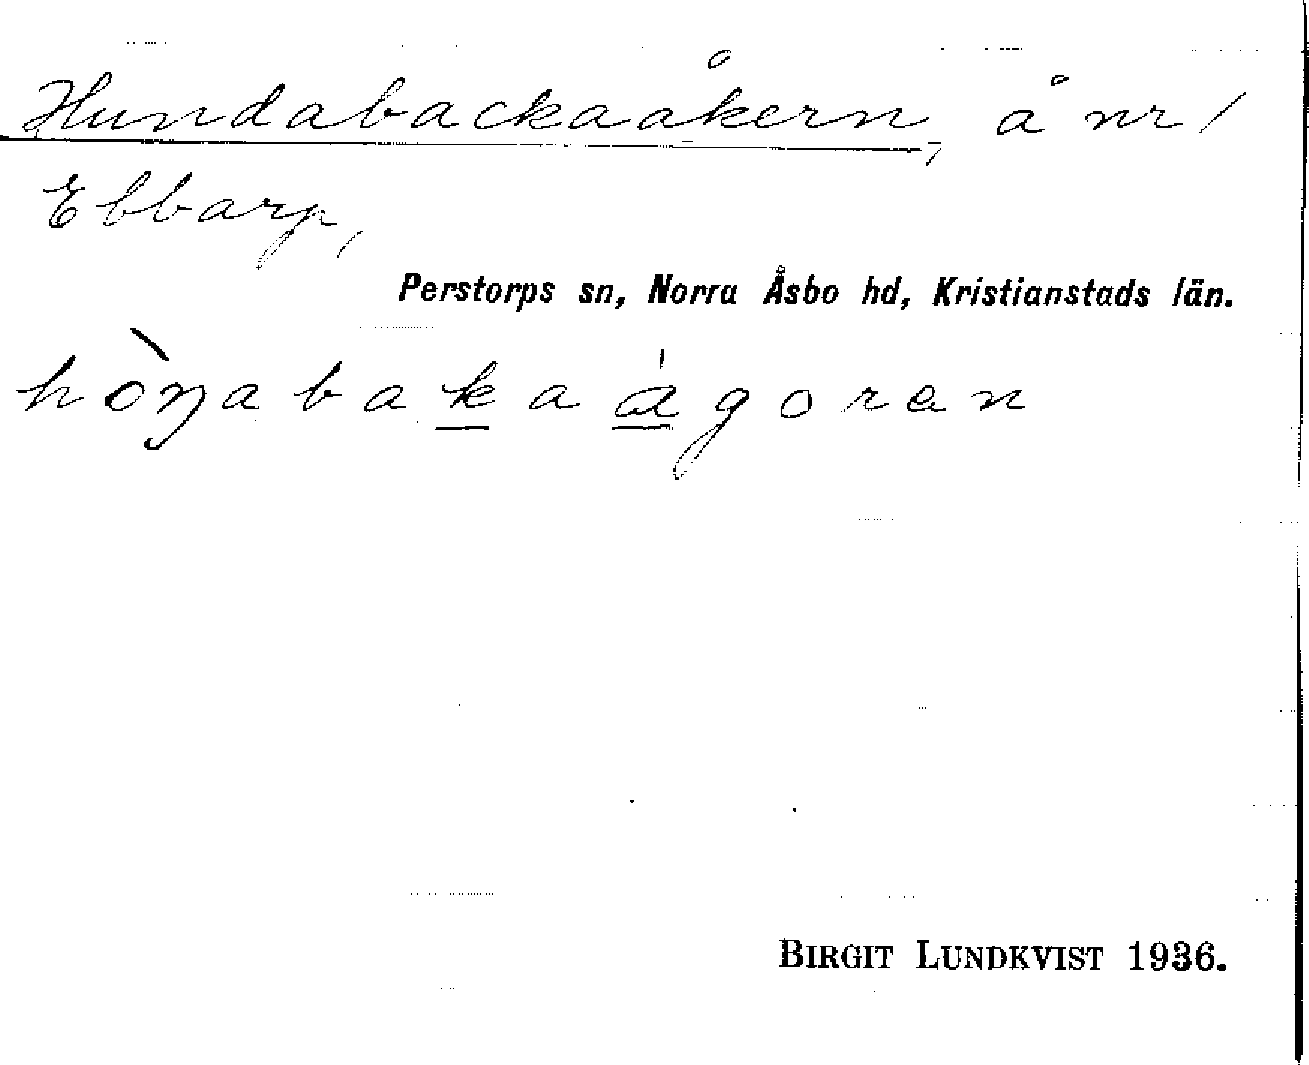 Hundabackaåkern, å nr 1
Ebbarp,
Perstorps sn, Norra Åsbo hd, Kristianstads län.
hòŋabakaágoran
BIRGIT LUNDKVIST 1936.